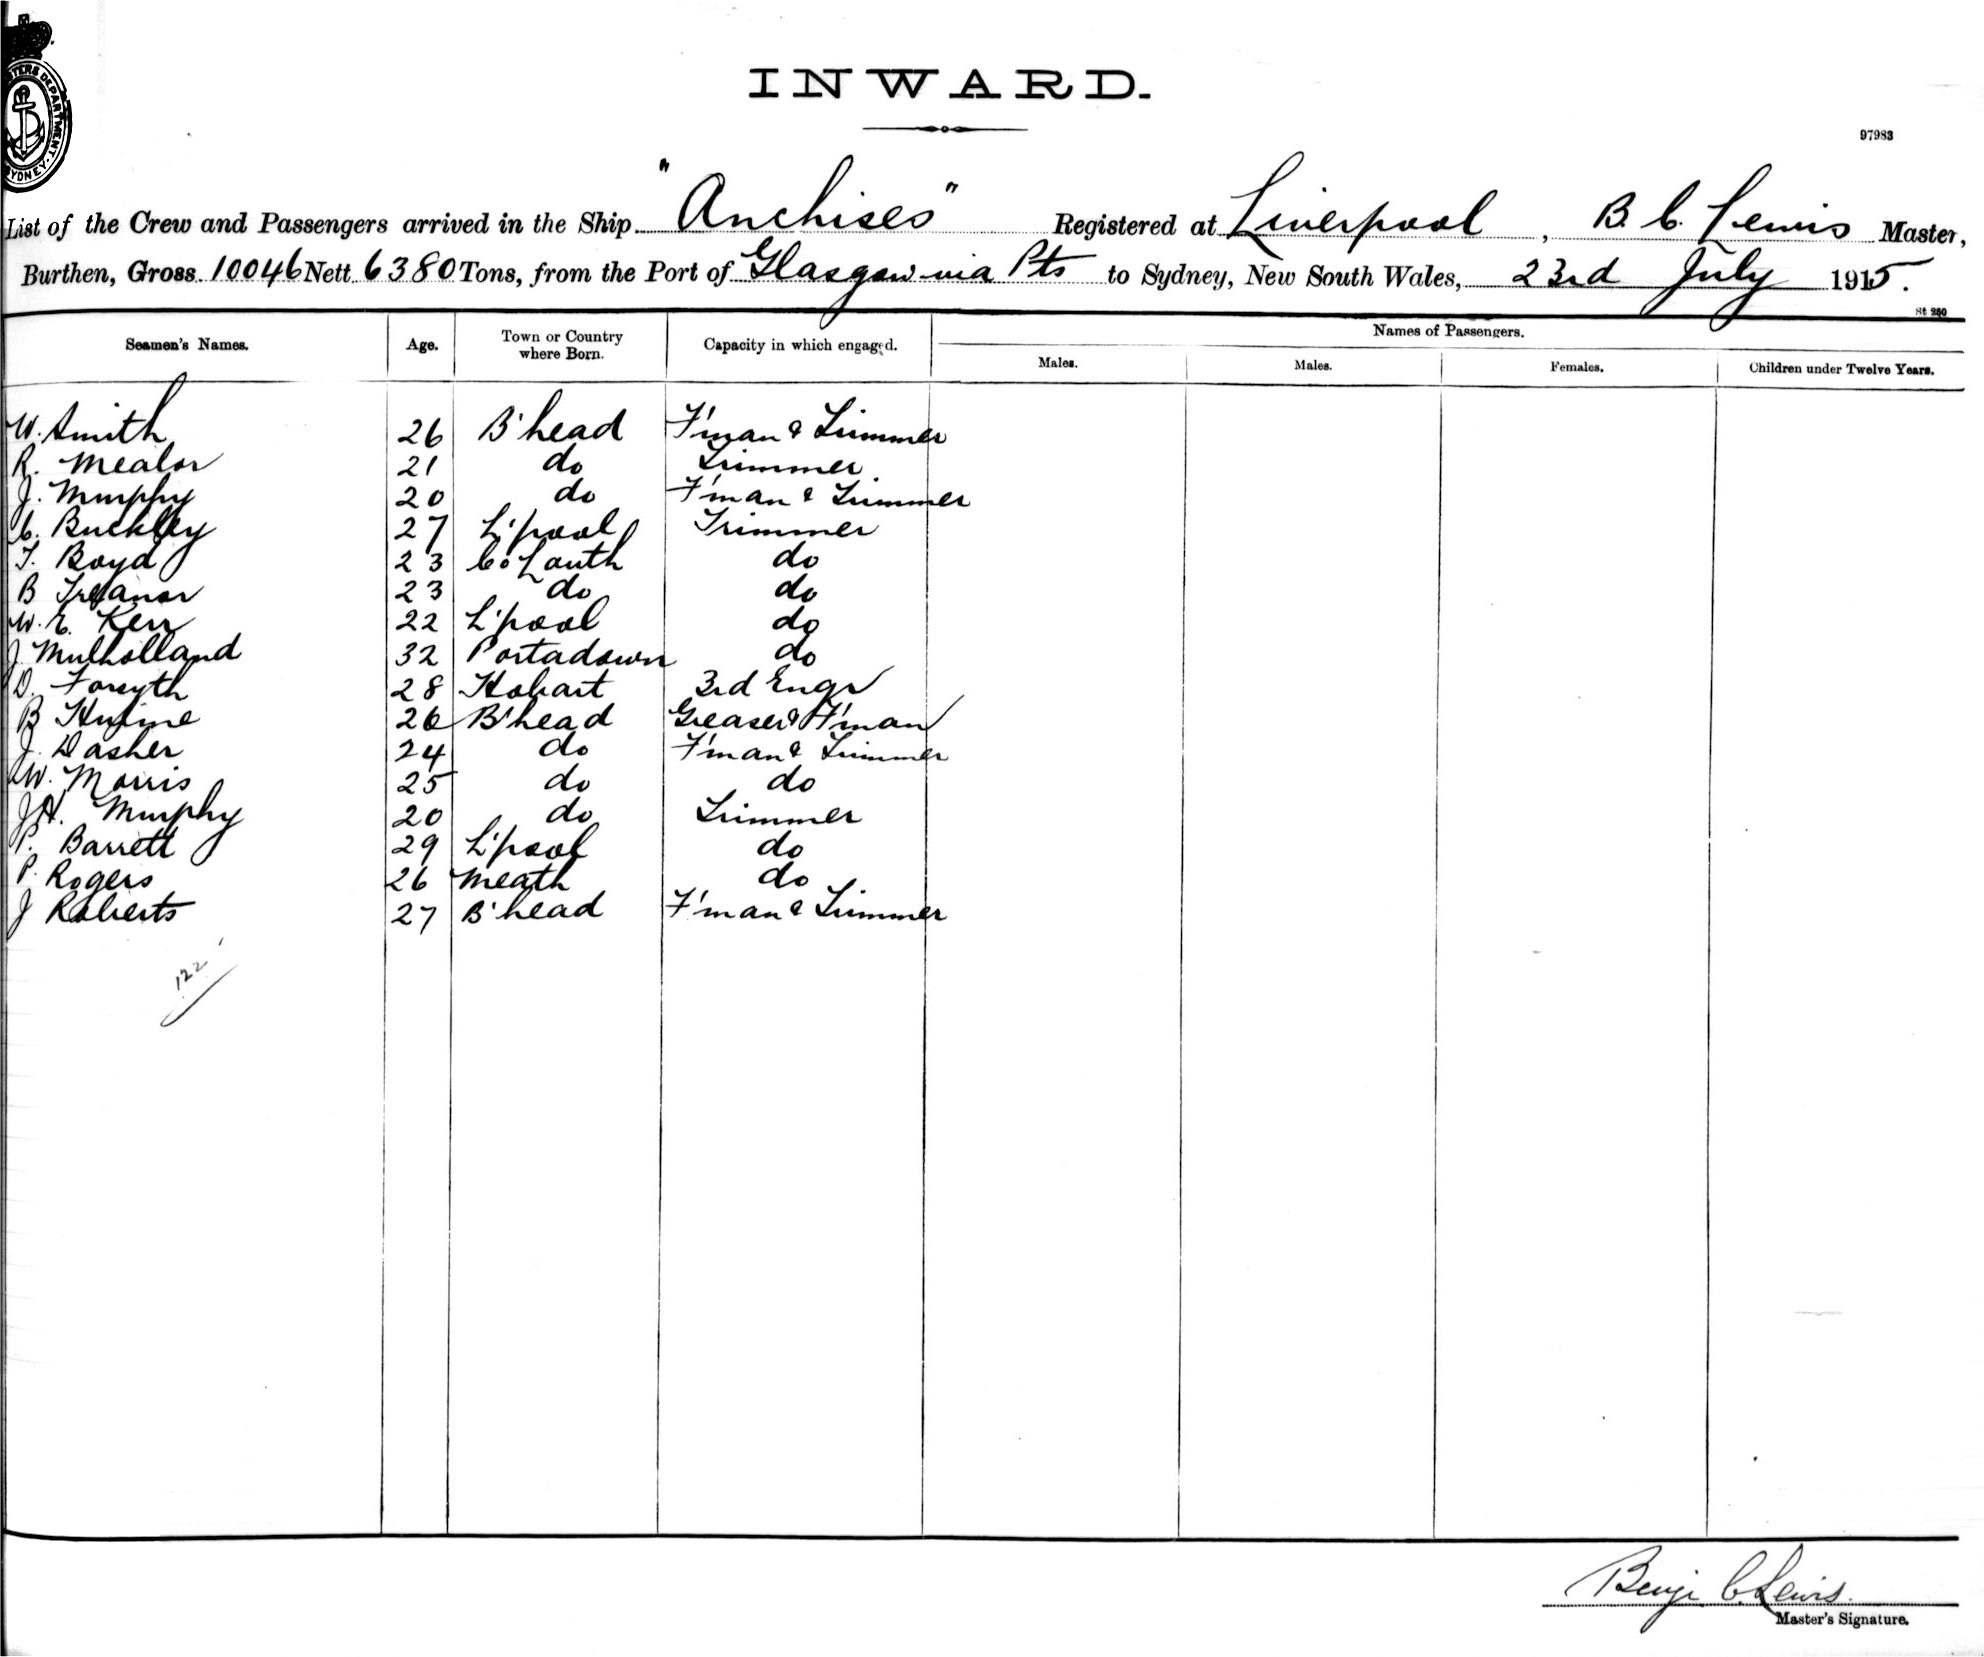 INWARD.
97983
List of the Crew and Passengers arrived in the Ship "Anchises" Registered at Liverpool, B. C. Lewis Master,
Burthen, Gross 10046 Nett 6380 Tons, from the Port of Glasgow via Pts to Sydney, New South Wales, 23rd July 1915.
St 250
Seamen's Names. Age. Town or Country where Born. Capacity in which engaged. Names of Passengers.
Males. Males. Females. Children under Twelve Years.
W. Smith 26 B'head F'man & Trimmer
R. Mealor 21 do Trimmer
J. Murphy 20 do F'man & Trimmer
C. Buckley 27 L'pool Trimmer
T. Boyd 23 Co Louth do
B Treanor 23 do do
W. E. Kerr 22 L'pool do
J Mulholland 32 Portadown do
D. Forsyth 28 Hobart 3rd Engr
B Hulme 26 B'head Greaser & F'man
J. Dasher 24 do F'man & Trimmer
W. Morris 25 do do
J H. Murphy 20 do Trimmer
P. Barrett 29 L'pool do
P. Rogers 26 Meath do
J Roberts 27 B'head F'man & Trimmer
122
Benj. C. Lewis.
Master's Signature.